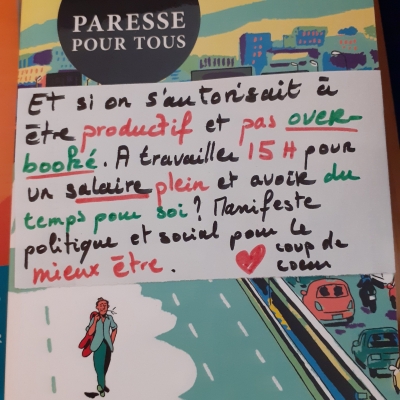 PARESSE
POUR TOUS
Et si on s'autorisait à
être productif et pas over-
booké. A travailler 15H pour
un salaire plein et avoir du
temps pour soi ? Manifeste
politique et social pour le
mieux être. ♥ coup de
coeur